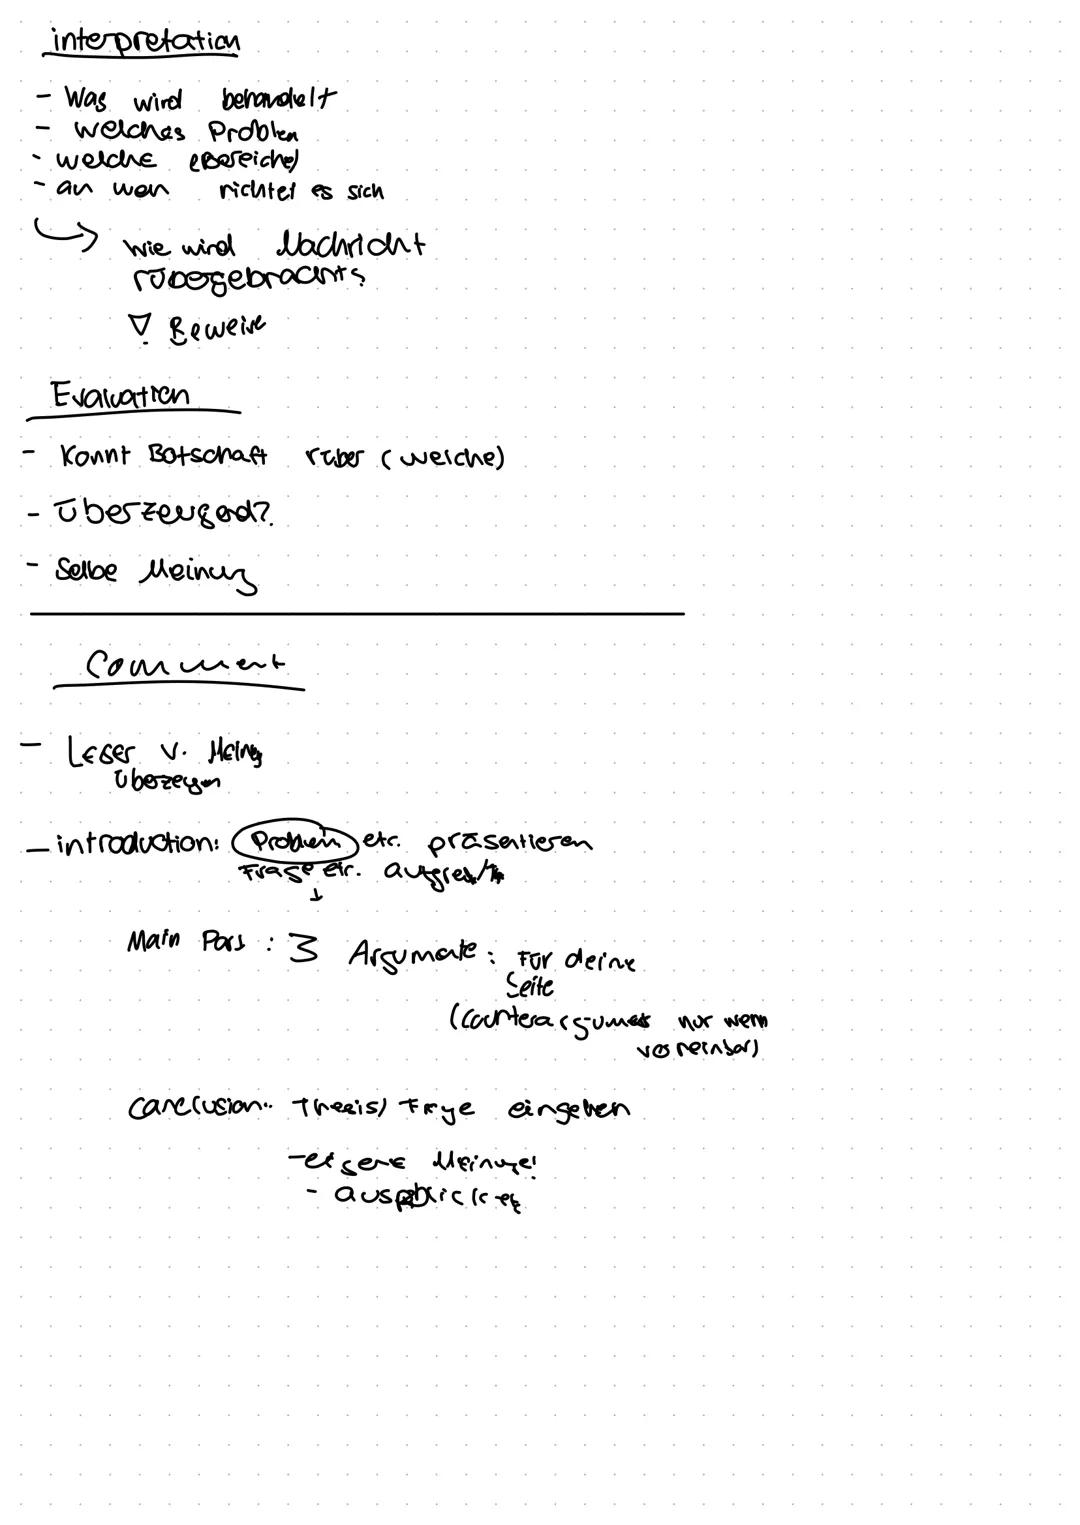 interpretation
- Was wird behandelt
- welches Problem
- welche (Bereiche)
- an wen richtet es sich
wie wird Nachricht
rübergebracht?
Beweise
Evaluation
- Kommt Botschaft rüber (welche)
- überzeugend?
- Selbe Meinung
Comment
- Leser v. Meinung
überzeugen
- introduction: Problem etc. präsentieren
Frage etc.
Main Part: 3 Argumente: Für deine
Seite
(counterarguments nur wenn
vereinbar)
Conclusion: Thesis/Frage eingehen
- eigene Meinung!
-